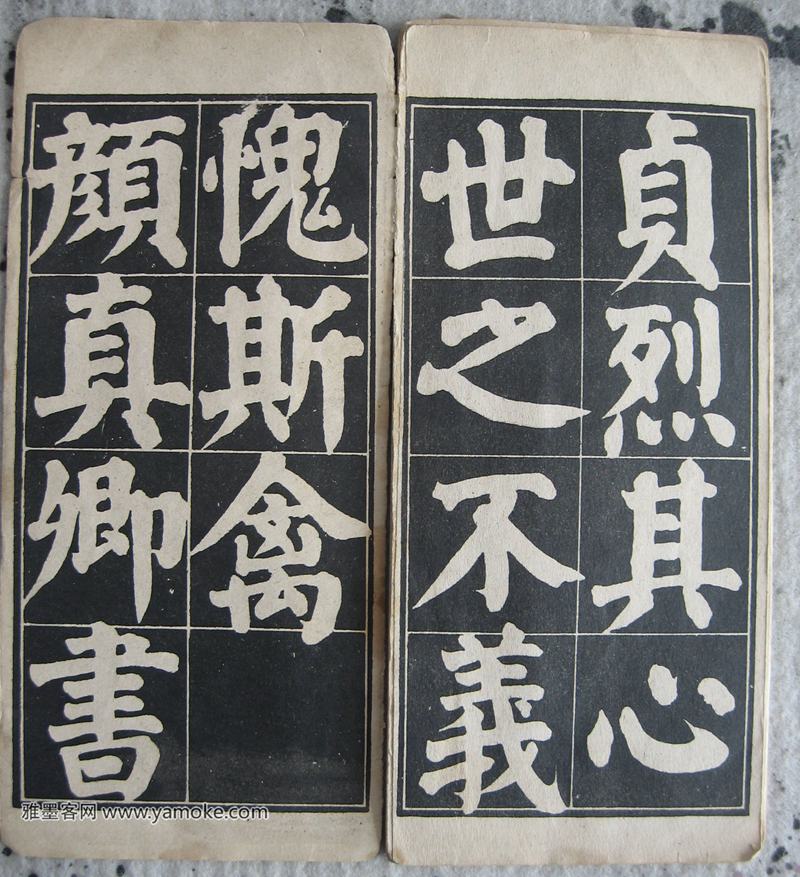 貞烈其心
世之不義
愧斯禽
顏真卿書
雅墨客网 www.yamoke.com